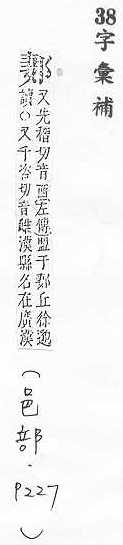 38字彙補
又先稽切音西左傳盟于郪丘徐邈
讀○又千咨切音雌漢縣名在廣漢
(邑部.P227)